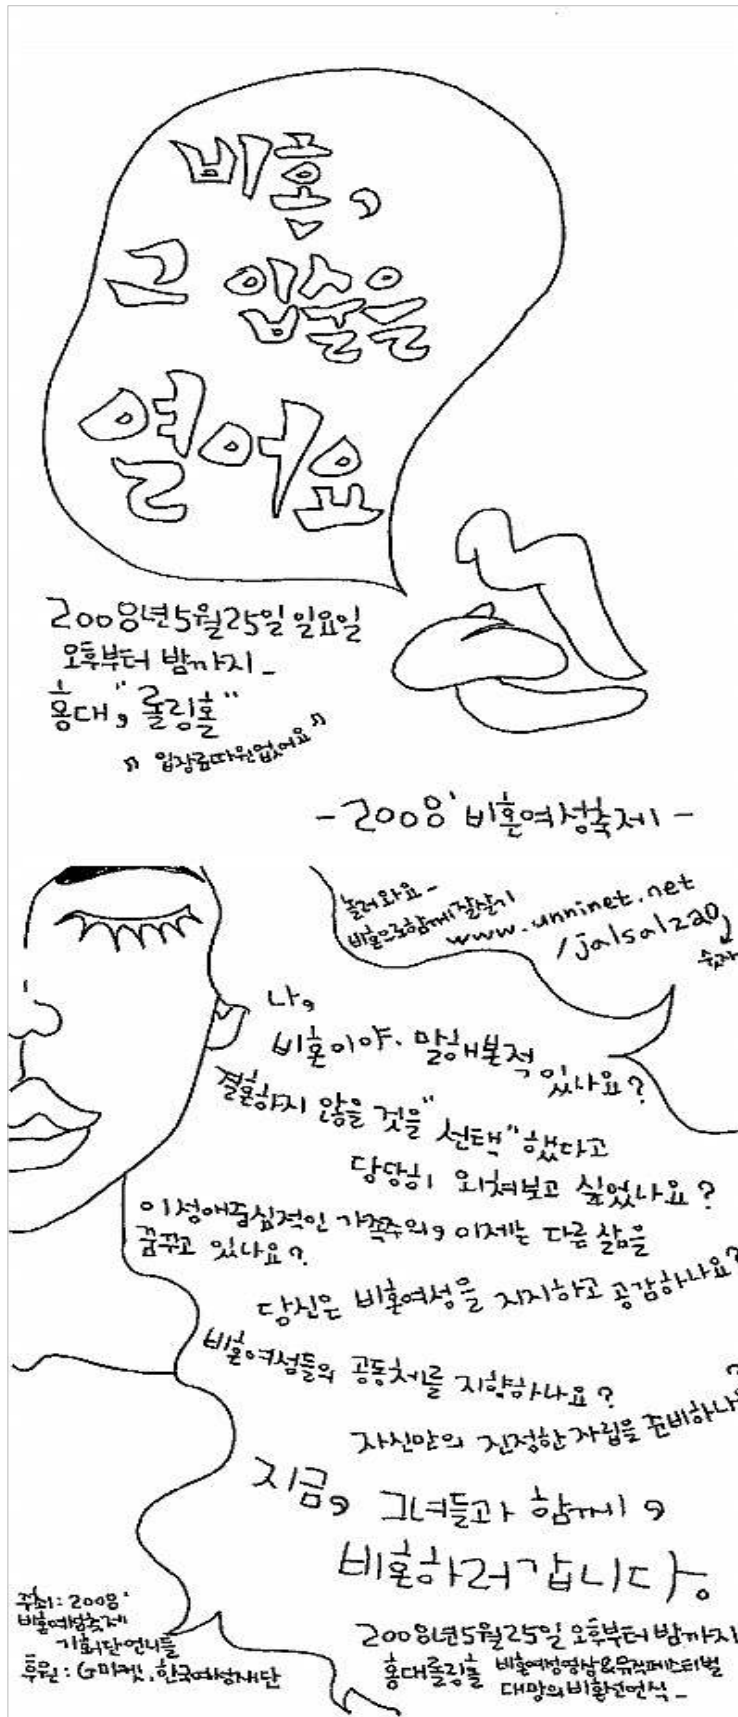 비혼,
그 입술을
열어요
2008년5월25일 일요일
오후부터 밤까지_
홍대, "롤링홀"
입장료따윈없어요
-2008' 비혼여성축제-
놀러와요-
비혼으로함께잘살기
www.unninet.net
/jalsalza0
숫자
나,
비혼이야. 말해본적 있나요?
결혼하지 않을 것을 "선택"했다고
당당히 외쳐보고 싶었나요?
이성애중심적인 가족주의, 이제는 다른 삶을
꿈꾸고 있나요?
당신은 비혼여성을 지지하고 공감하나요?
비혼여성들의 공동체를 지향하나요?
자신만의 진정한 자립을 준비하나요?
지금, 그녀들과 함께,
비혼하러갑니다.
주최: 2008'
비혼여성축제
기획단언니들
후원: G마켓, 한국여성재단
2008년5월25일 오후부터밤까지
홍대롤링홀 비혼여성영상&뮤직페스티벌
대망의비혼선언식_